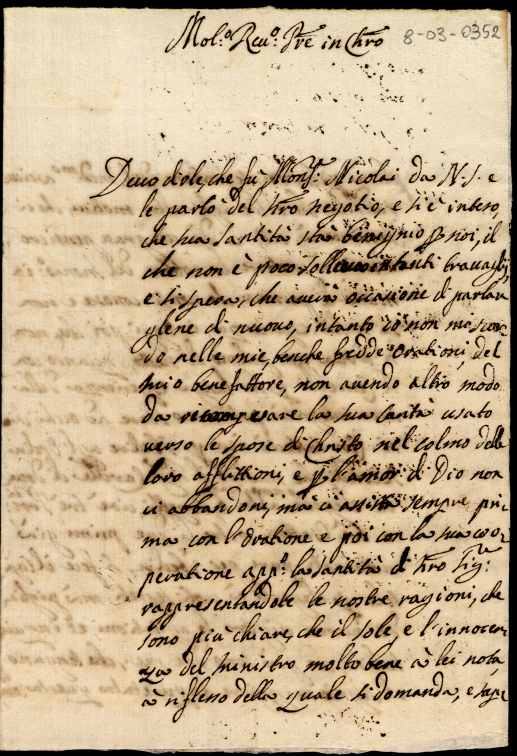 Mol:º Reu:º Pre in Chro
8-03-0352
Deuo dirle, che fù Monsr. Nicolai da N. S. e
le parlò del nro negotio, e si è inteso,
che sua santità stà benignio p noi, il
che non è poco solleuo in tanti trauagli,
e si spera, che auerà occasione di parlar
glene di nuouo, intanto io non mi scor
do nelle mie, benche fredde orationi, del
mio benefattore, non auendo altro modo
da ricompesare la sua carità usato
verso le spose di Christo nel colmo delle
loro afflittioni, e p l'amor di Dio non
ci abbandoni, mà ci assista sempre pri
ma con l'oratione e poi con la sua coo
peratione app:º la santità di nro Sigre
rappresentandole le nostre ragioni, che
sono più chiare, che il sole, e l'innocen
za del ministro molto bene à lei nota,
à riflesso della quale si domanda, e